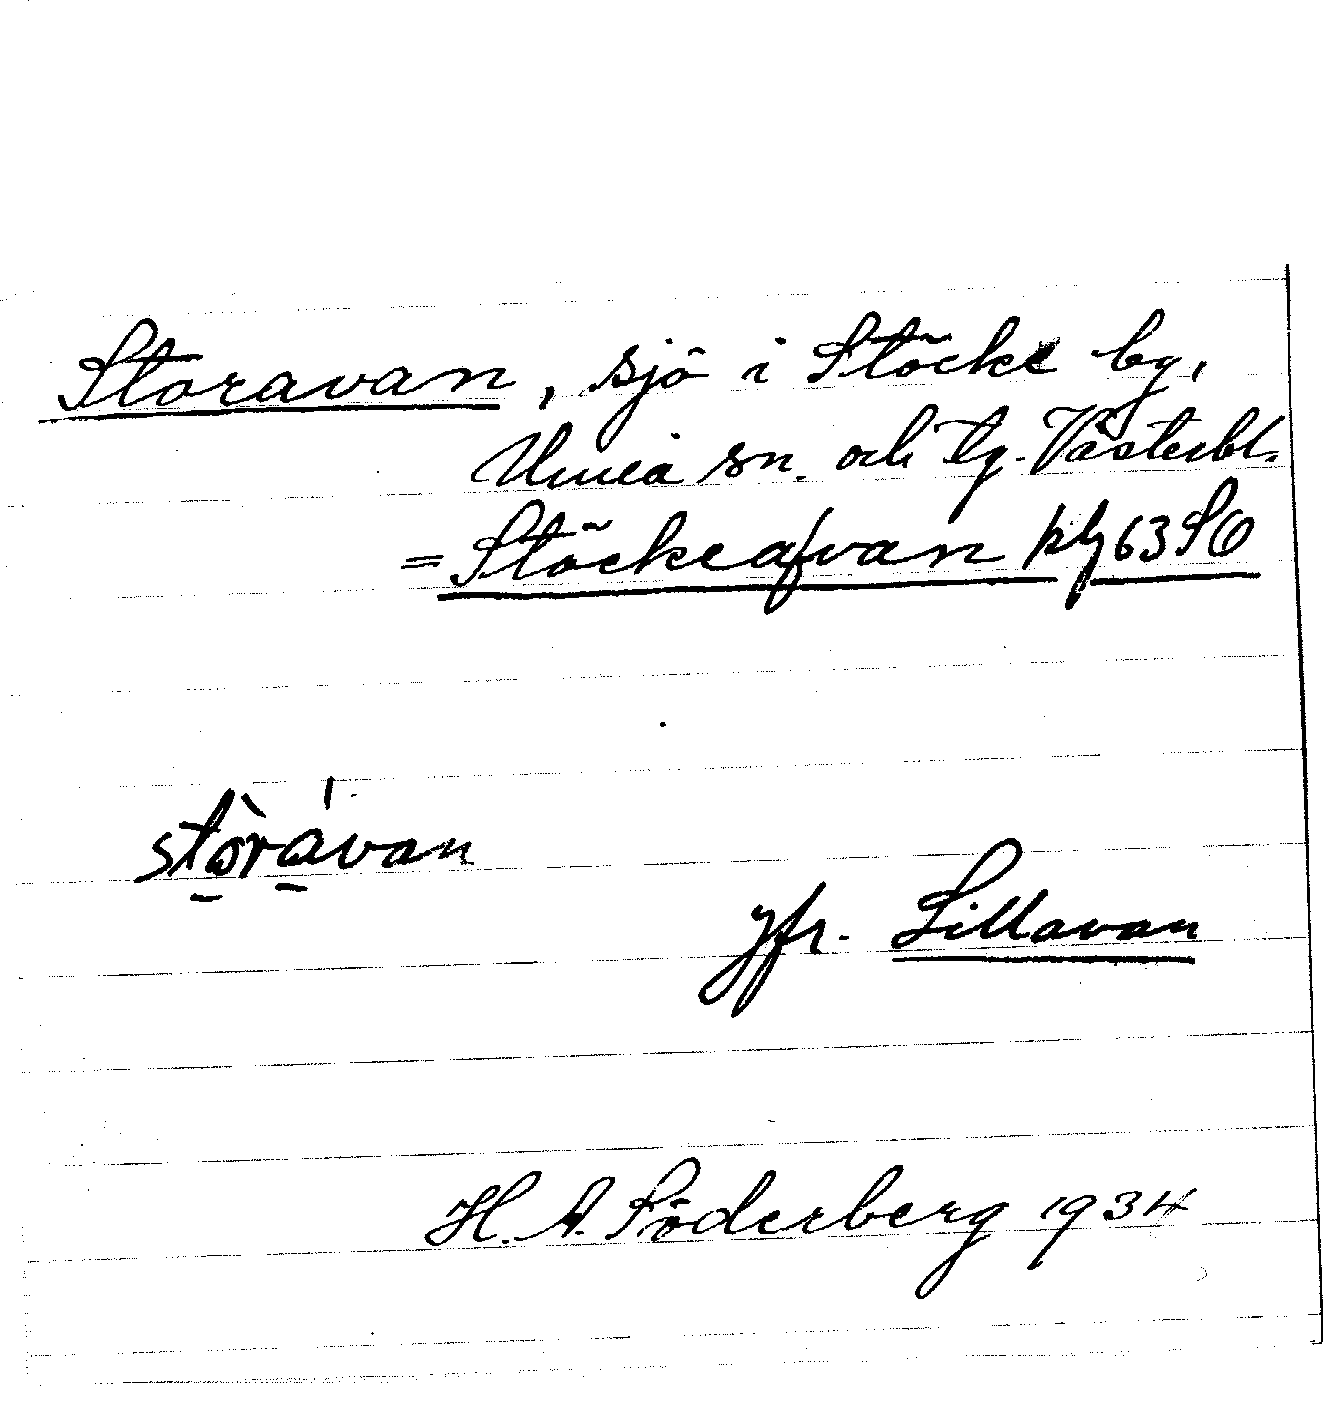 Storavan, sjö i Stöcke by,
Umeå sn. och tg. Västerbt.
= Stöckeafvan kbl 63 SO
stòrávan
jfr. Lillavan
H. A. Söderberg 1934